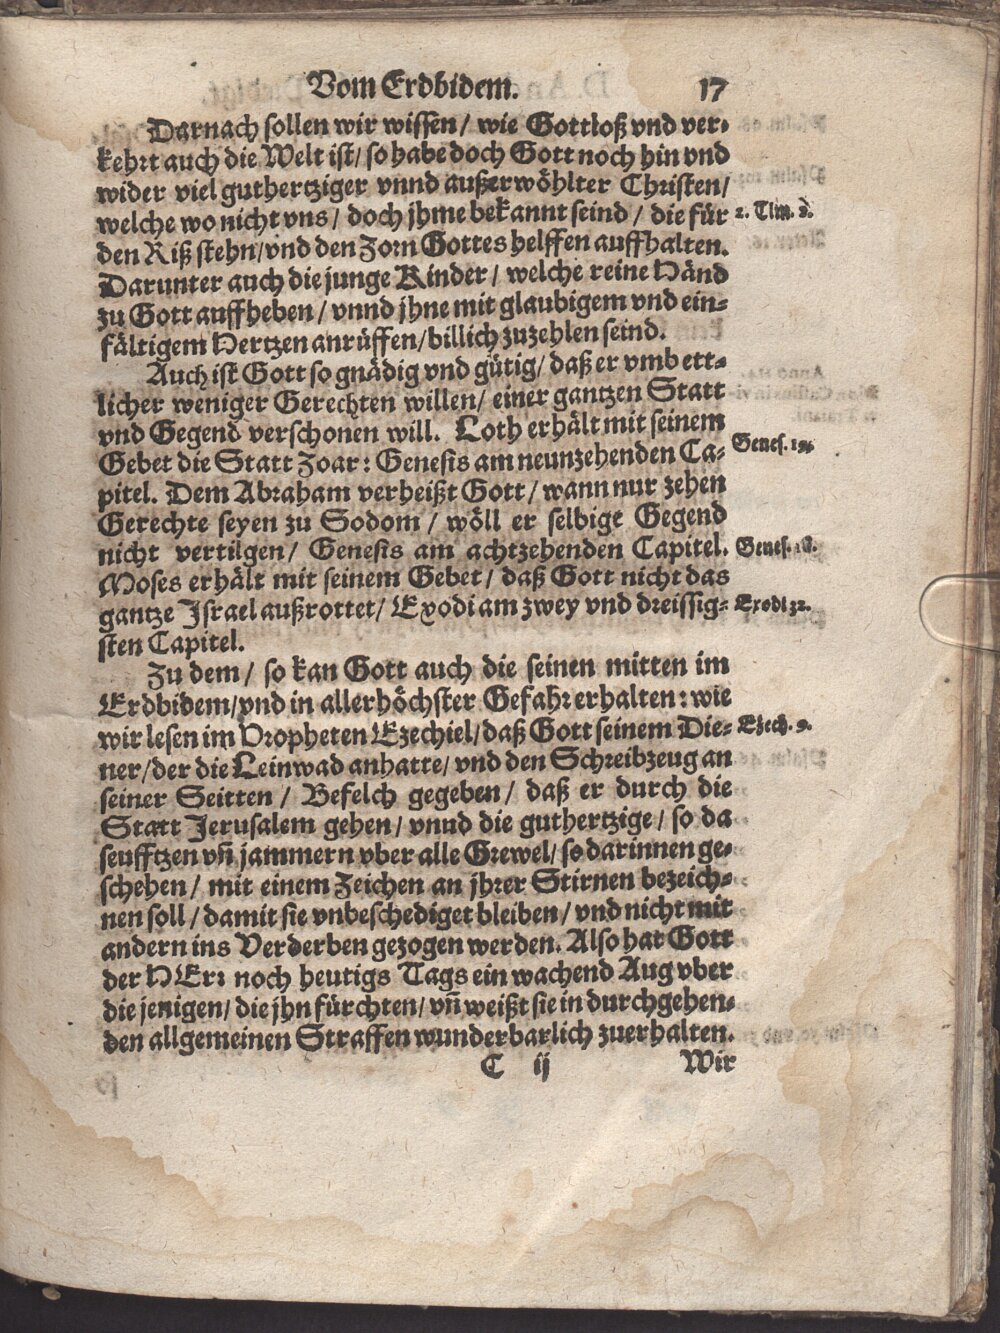 Vom Erdbidem. 17
Darnach sollen wir wissen/ wie Gottloß vnd ver-
kehrt auch die Welt ist/ so habe doch Gott noch hin vnd
wider viel guthertziger vnnd außerwöhlter Christen/
welche wo nicht vns/ doch jhme bekannt seind/ die für
2. Tim. 2.
den Riß stehn/ vnd den Zorn Gottes helffen auffhalten.
Darunter auch die junge Kinder/ welche reine Händ
zu Gott auffheben/ vnnd jhne mit glaubigem vnd ein-
fältigem Hertzen anrüffen/ billich zuzehlen seind.
Auch ist Gott so gnädig vnd gütig/ daß er vmb ett-
licher weniger Gerechten willen/ einer gantzen Statt
vnd Gegend verschonen will. Loth erhält mit seinem
Genes. 19.
Gebet die Statt Zoar: Genesis am neunzehenden Ca-
pitel. Dem Abraham verheißt Gott/ wann nur zehen
Gerechte seyen zu Sodom/ wöll er selbige Gegend
nicht vertilgen/ Genesis am achtzehenden Capitel.
Genes. 18.
Moses erhält mit seinem Gebet/ daß Gott nicht das
gantze Israel außrottet/ Exodi am zwey vnd dreissig-
Exodi 32.
sten Capitel.
Zu dem/ so kan Gott auch die seinen mitten im
Erdbidem/ vnd in allerhöchster Gefahr erhalten: wie
wir lesen im Propheten Ezechiel/ daß Gott seinem Die-
Ezech. 9.
ner/ der die Leinwad anhatte/ vnd den Schreibzeug an
seiner Seitten/ Befelch gegeben/ daß er durch die
Statt Jerusalem gehen/ vnud die guthertzige/ so da
seufftzen vñ jammern vber alle Grewel/ so darinnen ge-
schehen/ mit einem Zeichen an jhrer Stirnen bezeich-
nen soll/ damit sie vnbeschediget bleiben/ vnd nicht mit
andern ins Verderben gezogen werden. Also hat Gott
der HErr noch heutigs Tags ein wachend Aug vber
die jenigen/ die jhn fürchten/ vñ weißt sie in durchgehen-
den allgemeinen Straffen wunderbarlich zuerhalten.
C ij Wir